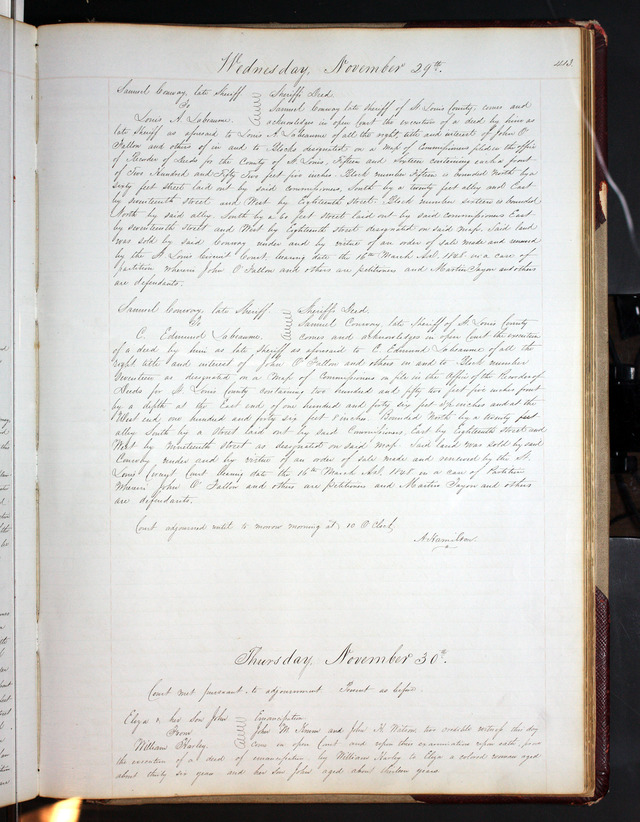 Wednesday, November 29th.
443
Samuel Conway, late Sheriff Sheriffs Deed.
To Samuel Conway late Sheriff of St Louis County, comes and
Louis A. Labeaume. acknowledges in open Court the execution of a deed by him as
late Sheriff as aforesaid to Louis A. Labeaume of all the right, title and interest of John O
Fallon and others of in and to Blocks designated on a Map of Commissioners filed in the office
of Recorder of Deeds for the County of St Louis, Fifteen and Sixteen containing each a front
of Two Hundred and Fifty Two feet five inches. Block number Fifteen is bounded North by a
Sixty feet street laid out by said commissioners, South by a twenty feet alley and East
by seventeenth street and West by Eighteenth Street. Block number sixteen is bounded
North by said alley South by a 60 feet street laid out by said commissioners East
by seventeenth street and West by Eighteenth Street designated on said Map. Said land
was sold by said Conway under and by virtue of an order of sale made and renewed
by the St Louis Circuit Court bearing date the 16th March A.D. 1848 in a case of
partition wherein John O Fallon and others are petitioners and Martin and others
are defendants.
Samuel Conway, late Sheriff. Sheriffs Deed.
To Samuel Conway, late Sheriff of St Louis County
C. Edmund Labeaume. comes and acknowledges in open Court the execution
of a deed by him as late Sheriff as aforesaid to C. Edmund Labeaume of all the
right title and interest of John O Fallon and others in and to Block number
Seventeen as designated on a Map of Commissioners on file in the Office of the Recorder of
Deeds for St Louis County containing two hundred and fifty two feet five inches front
by a depth at the East end of one hundred and fifty six feet inches and at the
West end one hundred and forty six feet 8 inches Bounded North by a twenty feet
alley South by a Street laid out by said Commissioners East by Eighteenth Street and
West by Nineteenth Street as designated on said Map. Said land was sold by said
Conway under and by virtue of an order of sale made and renewed by the St.
Louis Court bearing date the 16th March A.D. 1848 in a case of Partition
wherein John O Fallon and others are petitioners and Martin and others
are defendants.
Court adjourned until to morrow morning at 10 O Clock,
A Hamilton
Thursday, November 30th.
Court met pursuant to adjournment Present as before.
Eliza & her Son John Emancipation
From John M. and John H. Watson, two credible witness this day
William come in open Court and upon their examination upon oath prove
the execution of a deed of emancipation by William to Eliza a colored woman aged
about thirty six years and her Son John aged about thirteen years.